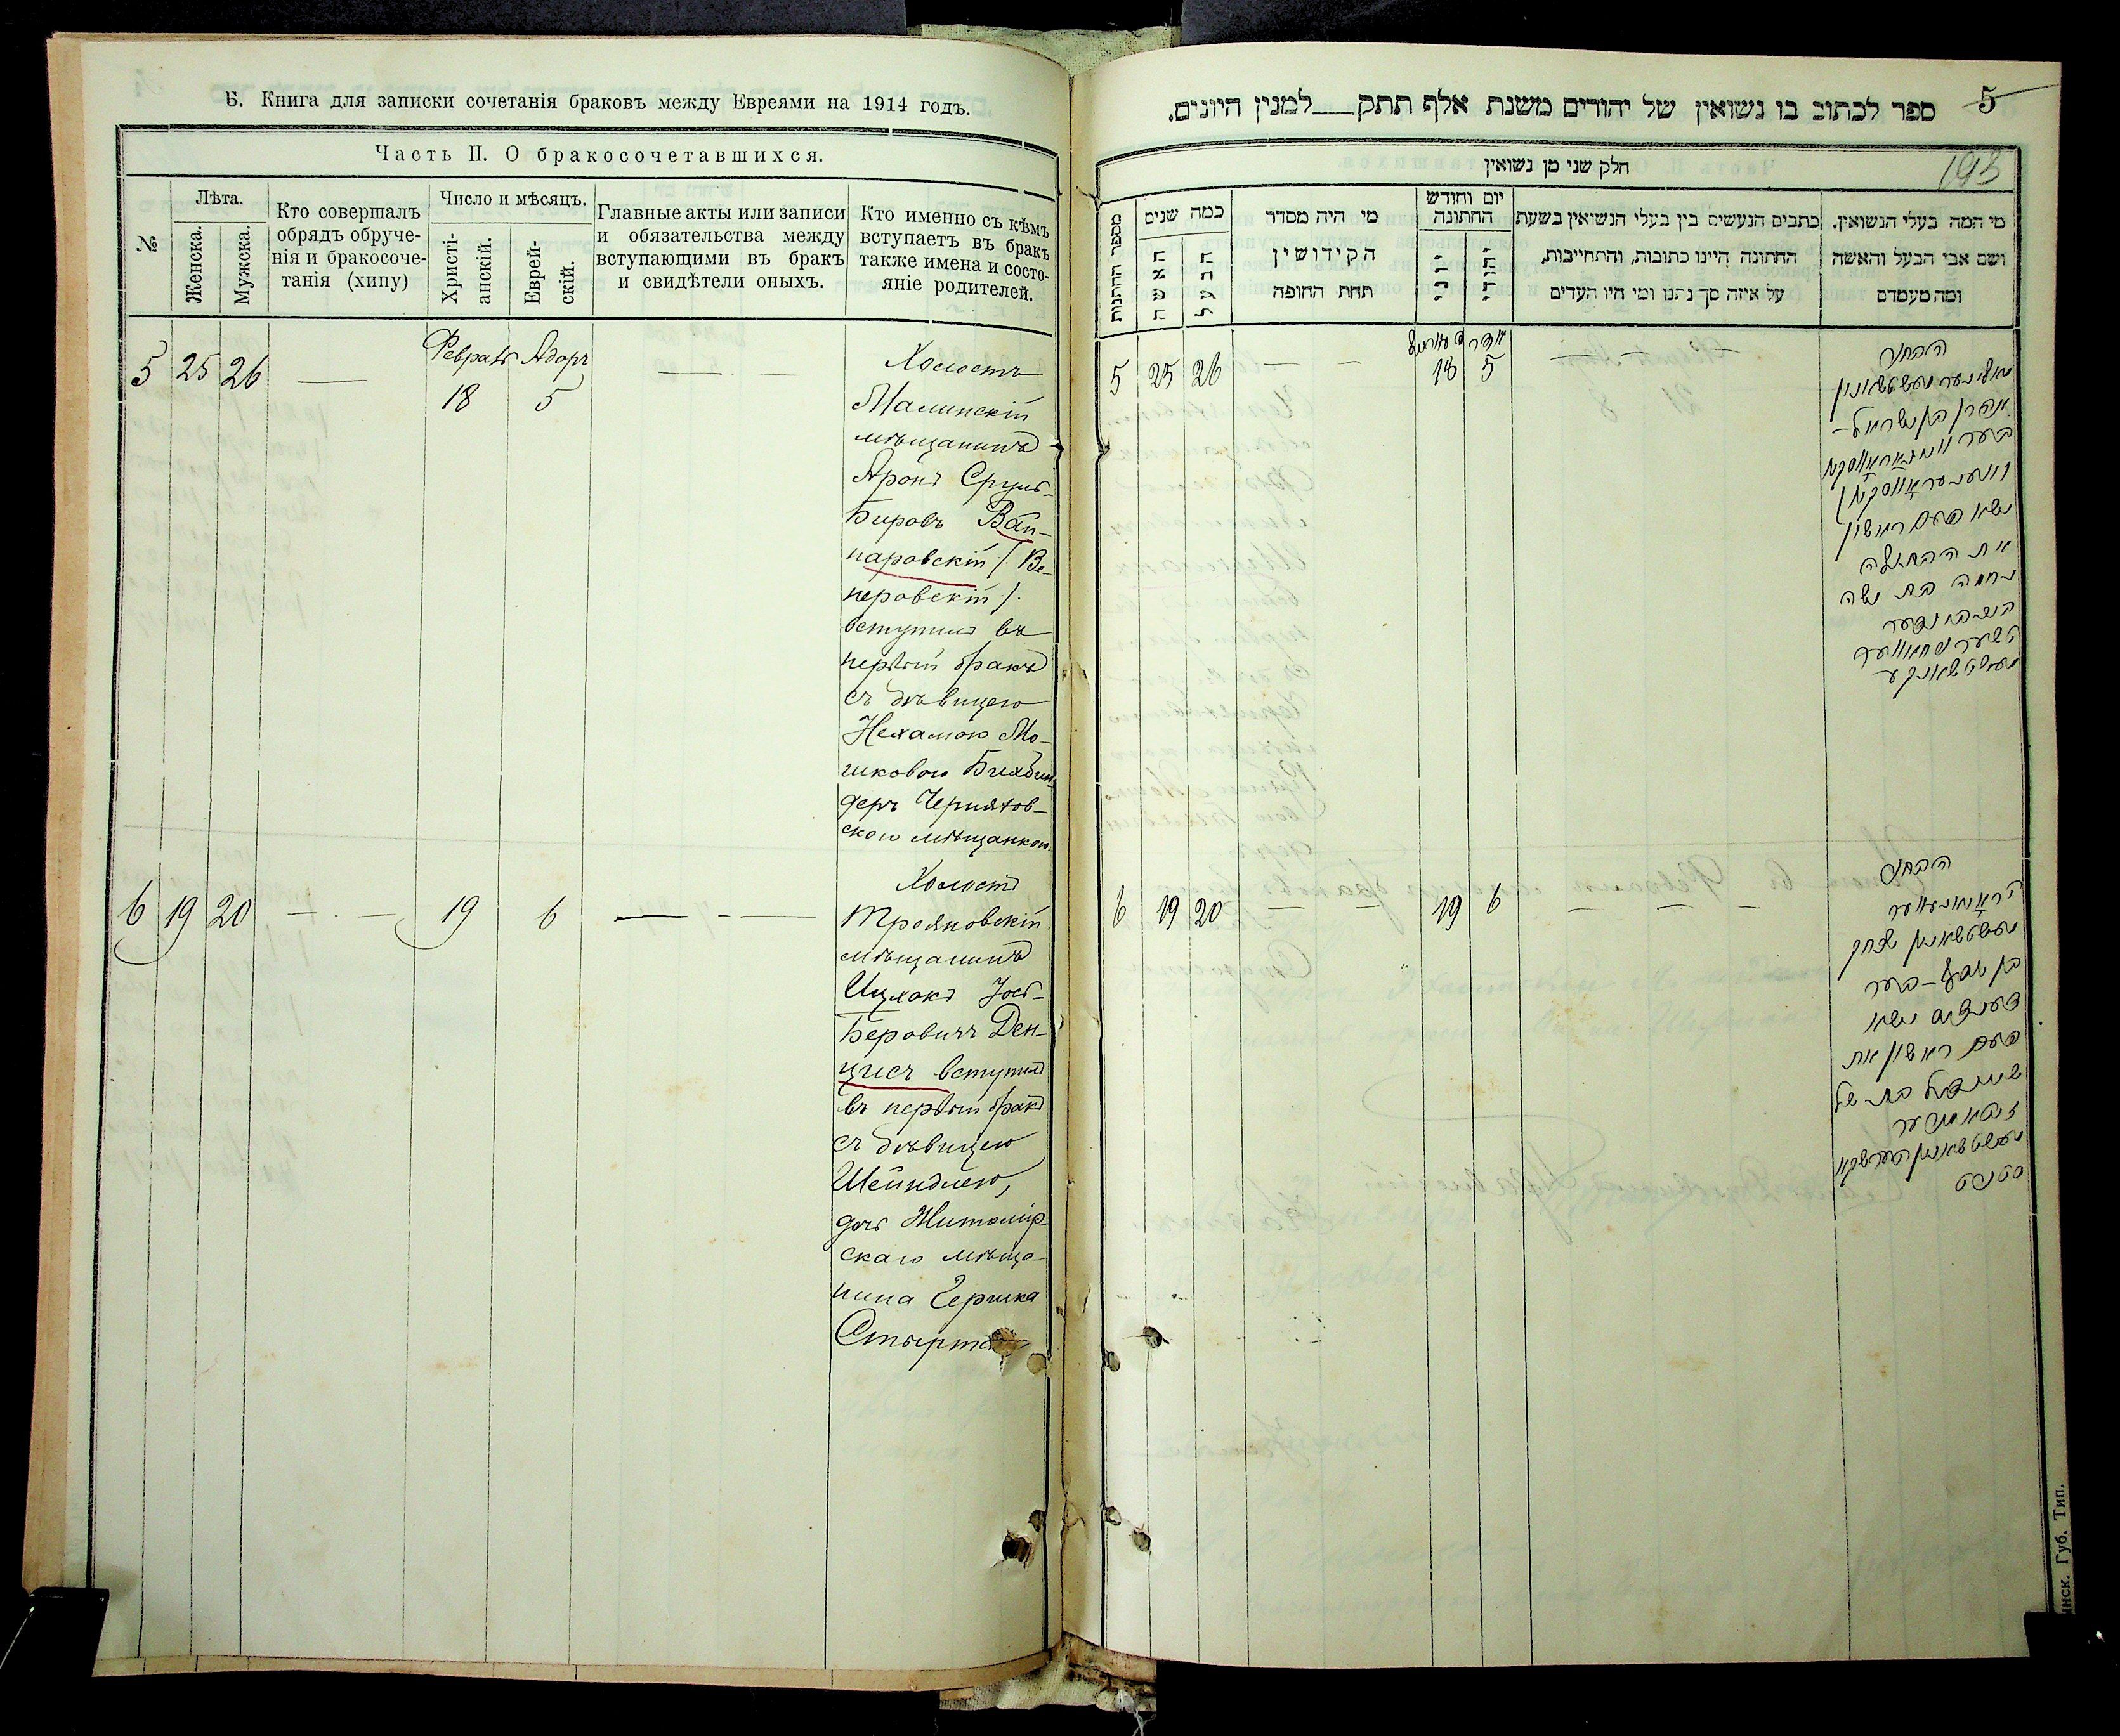 Б. Книга для записки сочетанія браковъ между Евреями на 1914 годъ.
Часть II. О бракосочетавшихся.
№
Лѣта.
Женска.
Мужска.
Кто совершалъ
обрядъ обруче-
нія и бракосоче-
танія (хипу)
Число и мѣсяцъ.
Христі-
анскій.
Еврей-
скій.
Главные акты или записи
и обязательства между
вступающими въ бракъ
и свидѣтели оныхъ.
Кто именно съ кѣмъ
вступаетъ въ бракъ
также имена и состо-
яніе родителей.
5 25 26 — Адаръ
18 5
Холостъ
Малинскій
мѣщанинъ
Аронъ Сруль-
Беровъ Вай-
наровскій /. Ве-
неровскій /.
вступилъ въ
первый бракъ
съ дѣвицею
Нехамою Мо-
шковою
деръ Чернихов-
скою мѣщанкою.
6 19 20 — 19 6 —
Холостъ
Трояновскій
мѣщанинъ
Ицхокъ Іось-
Беровичъ Ден-
цисъ вступилъ
въ первый бракъ
съ дѣвицею
Шейндлею,
дочь Житомір
скаго мѣща
нина Гершка
5
193
ספר לכתוב בו נשואין של יהודים משנת אלף תתק למנין היונים.
חלק שני מן נשואין
מספר החתונות
כמה שנים
האשה
הבעל
מי היה מסדר
הקידושין
תחת החופה
יום וחודש
החתונה
יוני
יהודי
כתבים הנעשים בין בעלי הנשואין בשעת
החתונה היינו כתובות, והתחייבות,
על איזה סך נתנו ומי היו העדים
מי המה בעלי הנשואין.
ושם אבי הבעל והאשה
ומה מעמדם
5 25 26 — — אדר
18 5
הבחור
אהרן בן ישראל-
בער
נשא פעם ראשון
את הבתולה
נחמה בת משה
6 19 20 — — 19 6 — — —
הבחור
יצחק
בן יוסף-בער
נשא
פעם ראשון את
שיינדל בת של
нск. Губ. Тип.